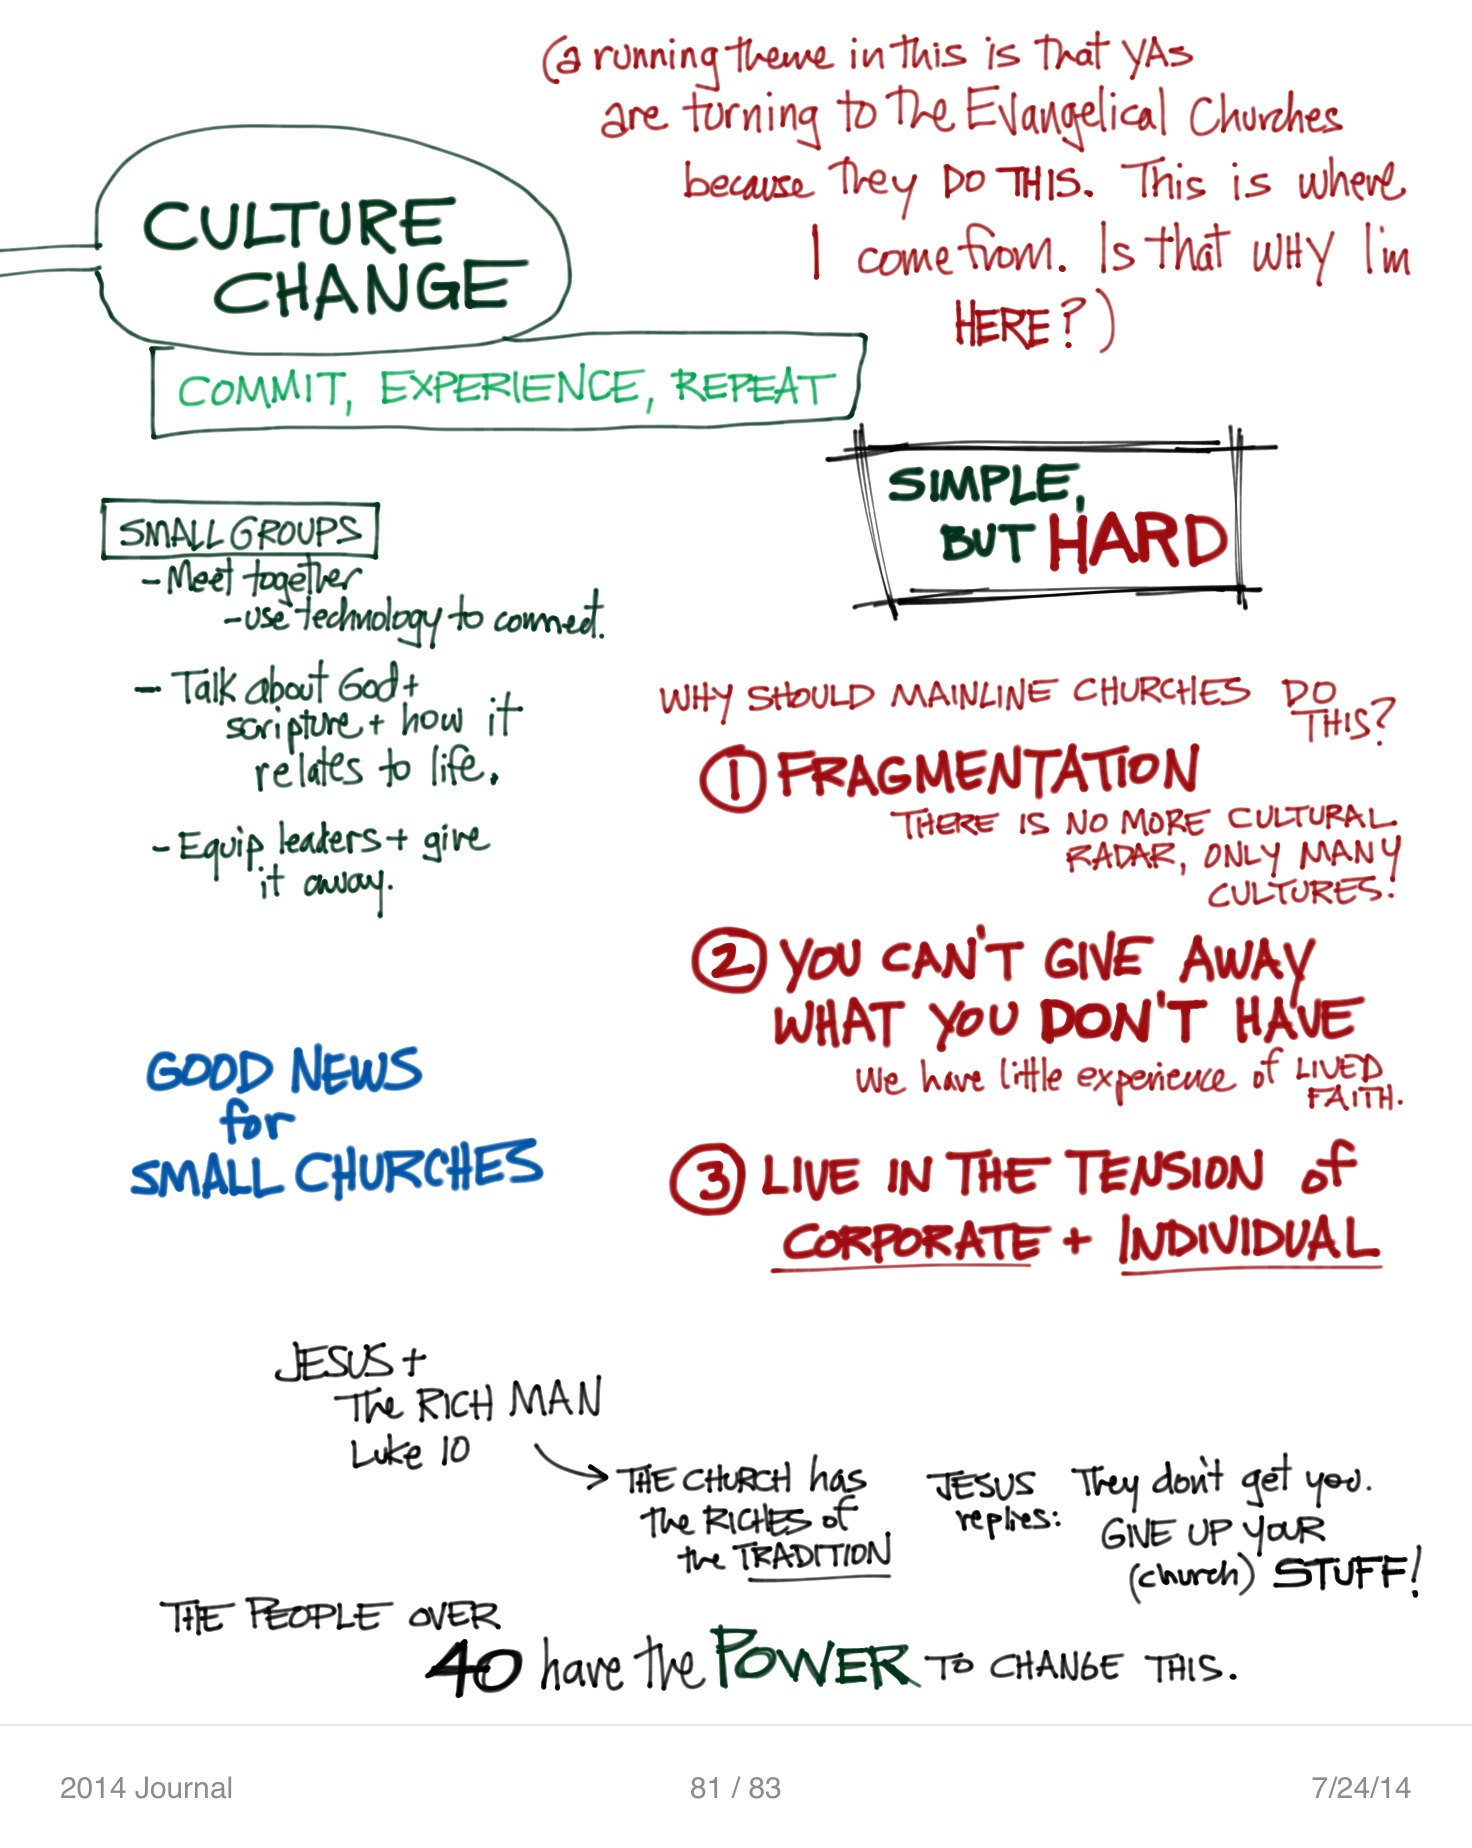 (a running theme in this is that YAs
are turning to the Evangelical Churches
because they DO THIS. This is where
I come from. Is that WHY I'm
HERE?)
CULTURE
CHANGE
COMMIT, EXPERIENCE, REPEAT
SIMPLE,
BUT HARD
SMALL GROUPS
- Meet together
- use technology to connect.
- Talk about God +
scripture + how it
relates to life.
- Equip leaders + give
it away.
GOOD NEWS
for
SMALL CHURCHES
WHY SHOULD MAINLINE CHURCHES DO
THIS?
1 FRAGMENTATION
THERE IS NO MORE CULTURAL
RADAR, ONLY MANY
CULTURES!
2 YOU CAN'T GIVE AWAY
WHAT YOU DON'T HAVE
We have little experience of LIVED
FAITH.
3 LIVE IN THE TENSION of
CORPORATE + INDIVIDUAL
JESUS +
The RICH MAN
Luke 10
THE CHURCH has
the RICHES of
the TRADITION
JESUS
replies:
They don't get you.
GIVE UP YOUR
(church) STUFF!
THE PEOPLE OVER
40 have the POWER TO CHANGE THIS.
2014 Journal
81 / 83
7/24/14